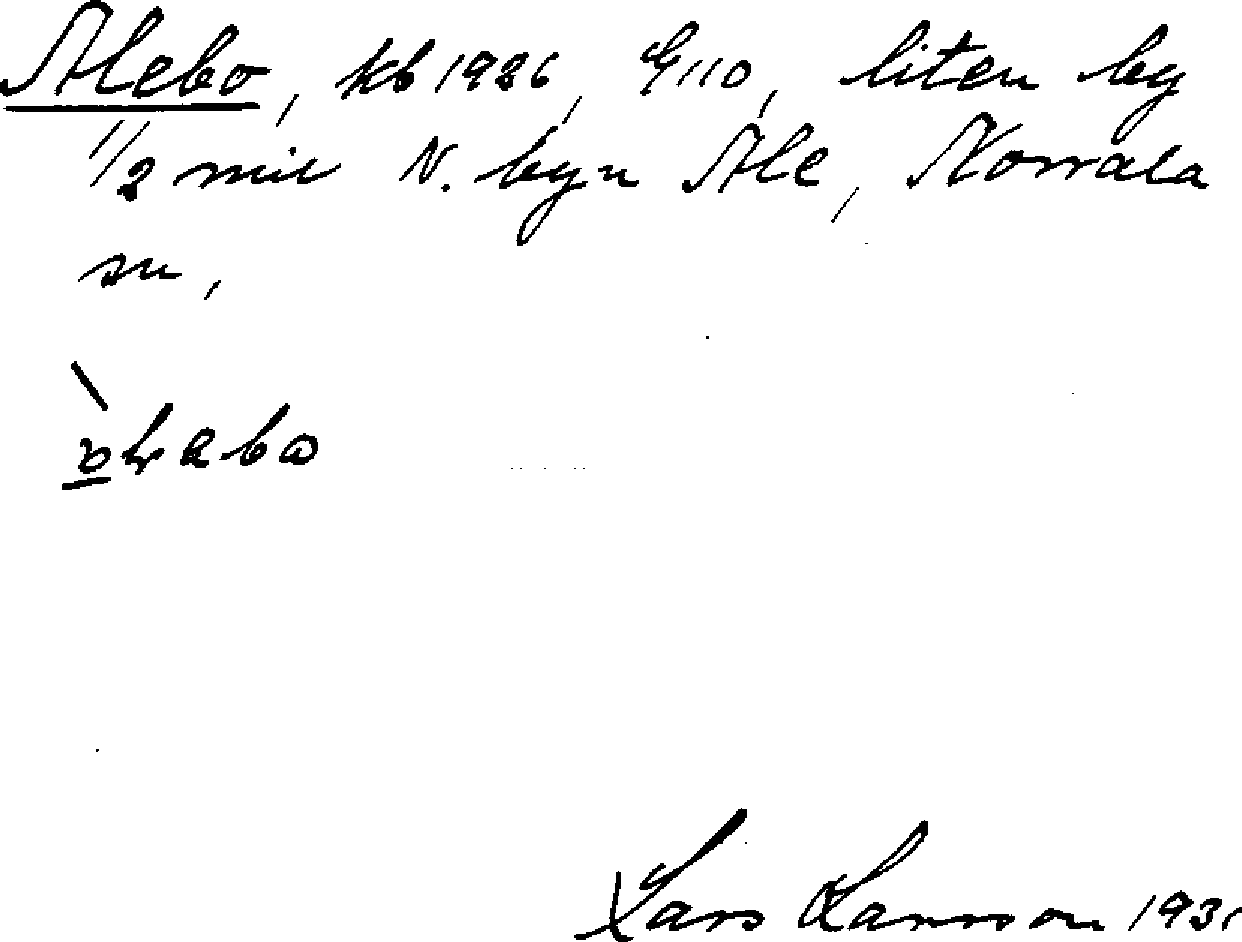 Alebo, kb 1926, G110, liten by
1/2 mil N. byn Ale, Norrala
sn,
Lars Larsson 1931